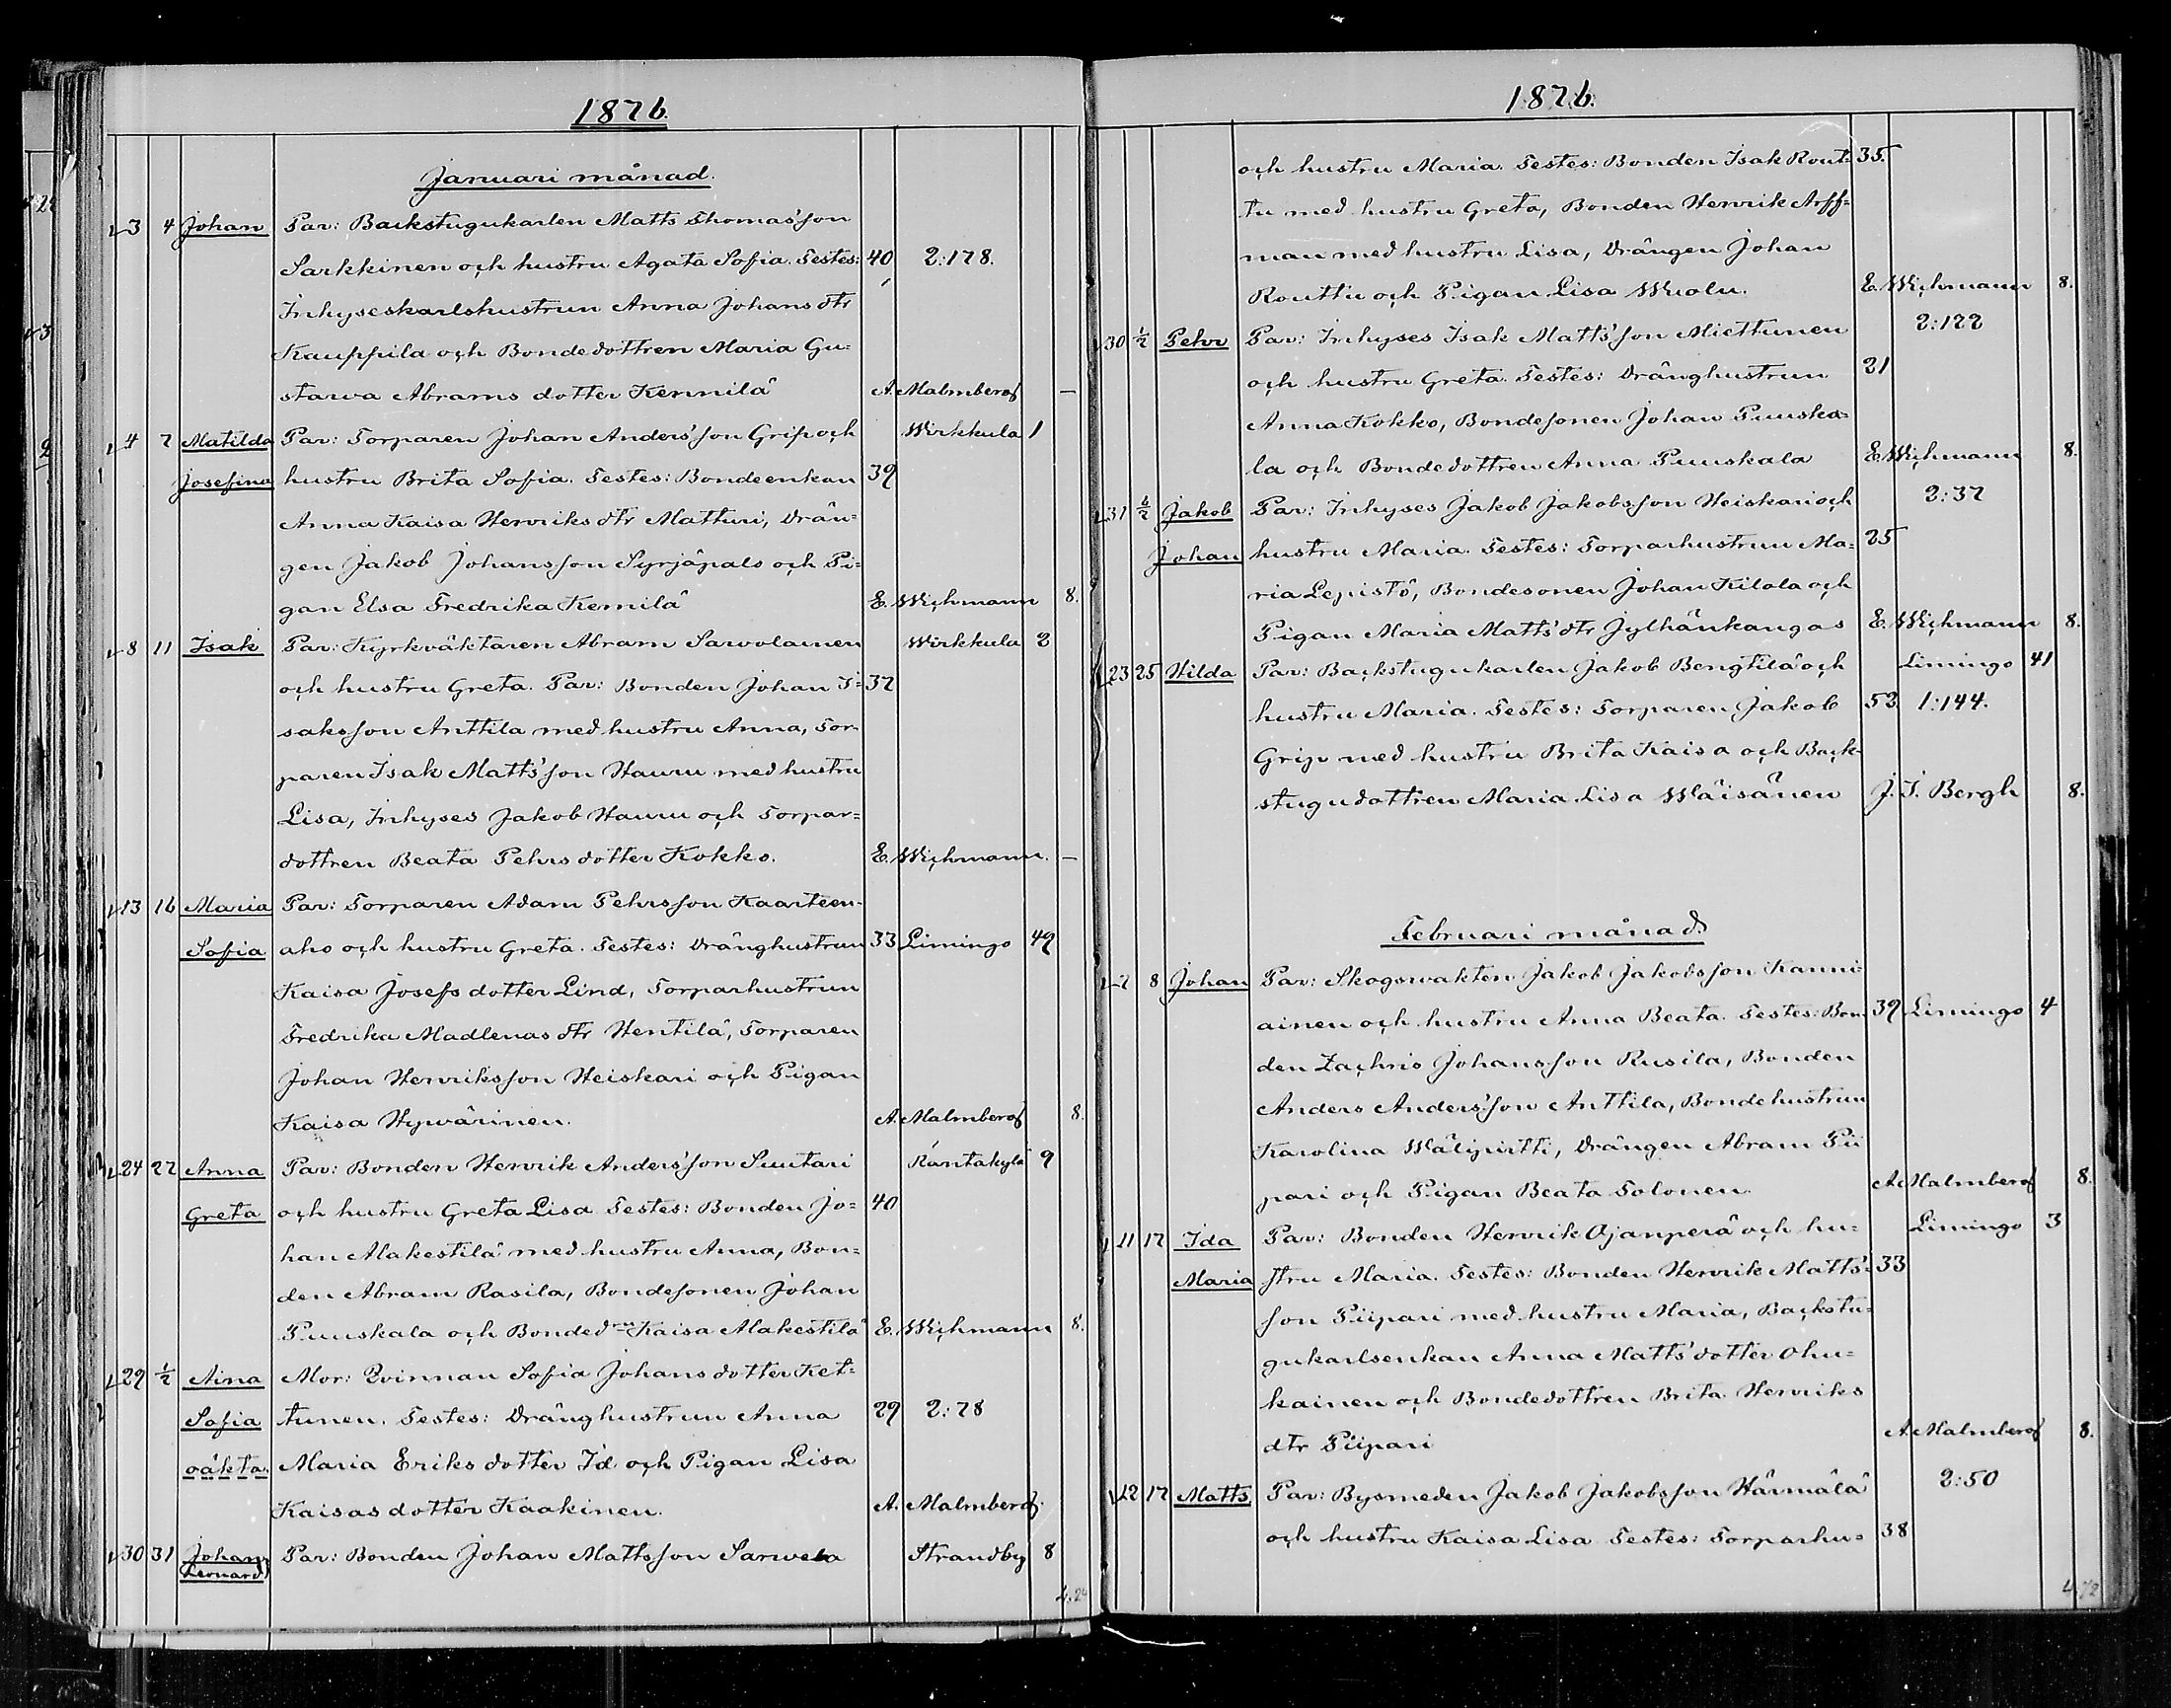 1876.
Januari månad.
3 4 Johan Par: Backstugukarlen Matts Thomas'son
Sarkkinen och hustru Agata Sofia. Testes: 40 2:178.
Inhyseskarlshustrun Anna Johans dtr
Kauppila och Bondedottren Maria Gu=
stawa Abrams dotter Kemilä A. Malmberg —
4 7 Matilda Par: Torparen Johan Anders'son Grip och Wirkkula 1
Josefina hustru Brita Sofia. Testes: Bondeenkan 39
Anna Kaisa Henriks dtr Matturi, Drän=
gen Jakob Johansson Syrjäpalo och Pi=
gan Elsa Fredrika Kemilä E. Wichmann 8.
8 11 Isak Par: Kyrkväktaren Abram Sawolainen Wirkkula 2
och hustru Greta. Par: Bonden Johan I= 37
saksson Anttila med hustru Anna, Tor-
paren Isak Matts'son Hauru med hustru
Lisa, Inhyses Jakob Hauru och Torpar=
dottren Beata Pehrs dotter Kokko. E. Wichmann. —
13 16 Maria Par: Torparen Adam Pehrsson Kaarteen-
Sofia aho och hustru Greta. Testes: Dränghustrun 33 Limingo 49
Kaisa Josefs dotter Lind, Torparhustrun
Fredrika Madlenas dtr Hentilä, Torparen
Johan Henriksson Heiskari och Pigan
Kaisa Hywärinen. A. Malmberg 8.
24 27 Anna Par: Bonden Henrik Anders'son Suutari Rantakylä 9
Greta och hustru Greta Lisa Testes: Bonden Jo= 40
han Alakestilä med hustru Anna, Bon=
den Abram Rasila, Bondesonen Johan
Puuskala och Bonded:n Kaisa Alakestilä E. Wichmann 8.
29 1/2 Aina Mor: Qvinnan Sofia Johans dotter Ket=
Sofia tunen. Testes: Dränghustrun Anna 29 2:78
oäkta. Maria Eriks dotter Id och Pigan Lisa
Kaisas dotter Kaakinen. A. Malmberg.
30 31 Johan Par: Bonden Johan Mattsson Sarwela Strandby 8
Leonard
1876.
och hustru Maria. Testes: Bonden Isak Rout= 35.
tu med hustru Greta, Bonden Henrik Arff=
man med hustru Lisa, Drängen Johan
Routtu och Pigan Lisa Wuolu. E. Wichmann 8.
30 1/2 Pehr Par: Inhyses Isak Matts'son Miettunen 2:122
och hustru Greta. Testes: Dränghustrun 21
Anna Kokko, Bondesonen Johan Puuska=
la och Bondedottren Anna Puuskala E. Wichmann 8.
31 1/2 Jakob Par: Inhyses Jakob Jakobsson Heiskari och 2:37
Johan hustru Maria. Testes: Torparhustrun Ma= 25
ria Lepistö, Bondesonen Johan Kilola och
Pigan Maria Matts' dtr Jylhänkangas E. Wichmann 8.
23 25 Hilda Par: Backstugukarlen Jakob Bengtilä och Limingo 41
hustru Maria. Testes: Torparen Jakob 53 1:144.
Grip med hustru Brita Kaisa och Back-
stugudottren Maria Lisa Wäisänen J. I. Bergh 8.
Februari månad
7 8 Johan Par: Skogswakten Jakob Jakobsson Kanni=
ainen och hustru Anna Beata. Testes: Bon= 39 Limingo 4
den Zachris Johansson Rusila, Bonden
Anders Anders'son Anttila, Bondehustrun
Karolina Wälipirtti, Drängen Abram Pii
pari och Pigan Beata Tolonen. A. Malmberg 8.
11 17 Ida Par: Bonden Henrik Ojanperä och hu= Limingo 3
Maria stru Maria. Testes: Bonden Henrik Matts'= 33
son Piipari med hustru Maria, Backstu=
gukarlsenkan Anna Matts' dotter Ohu=
kainen och Bondedottren Brita Henriks
dtr Piipari A. Malmberg 8.
12 17 Matts Par: Bysmeden Jakob Jakobsson Härmälä 2:50
och hustru Kaisa Lisa Testes: Torparhu= 38